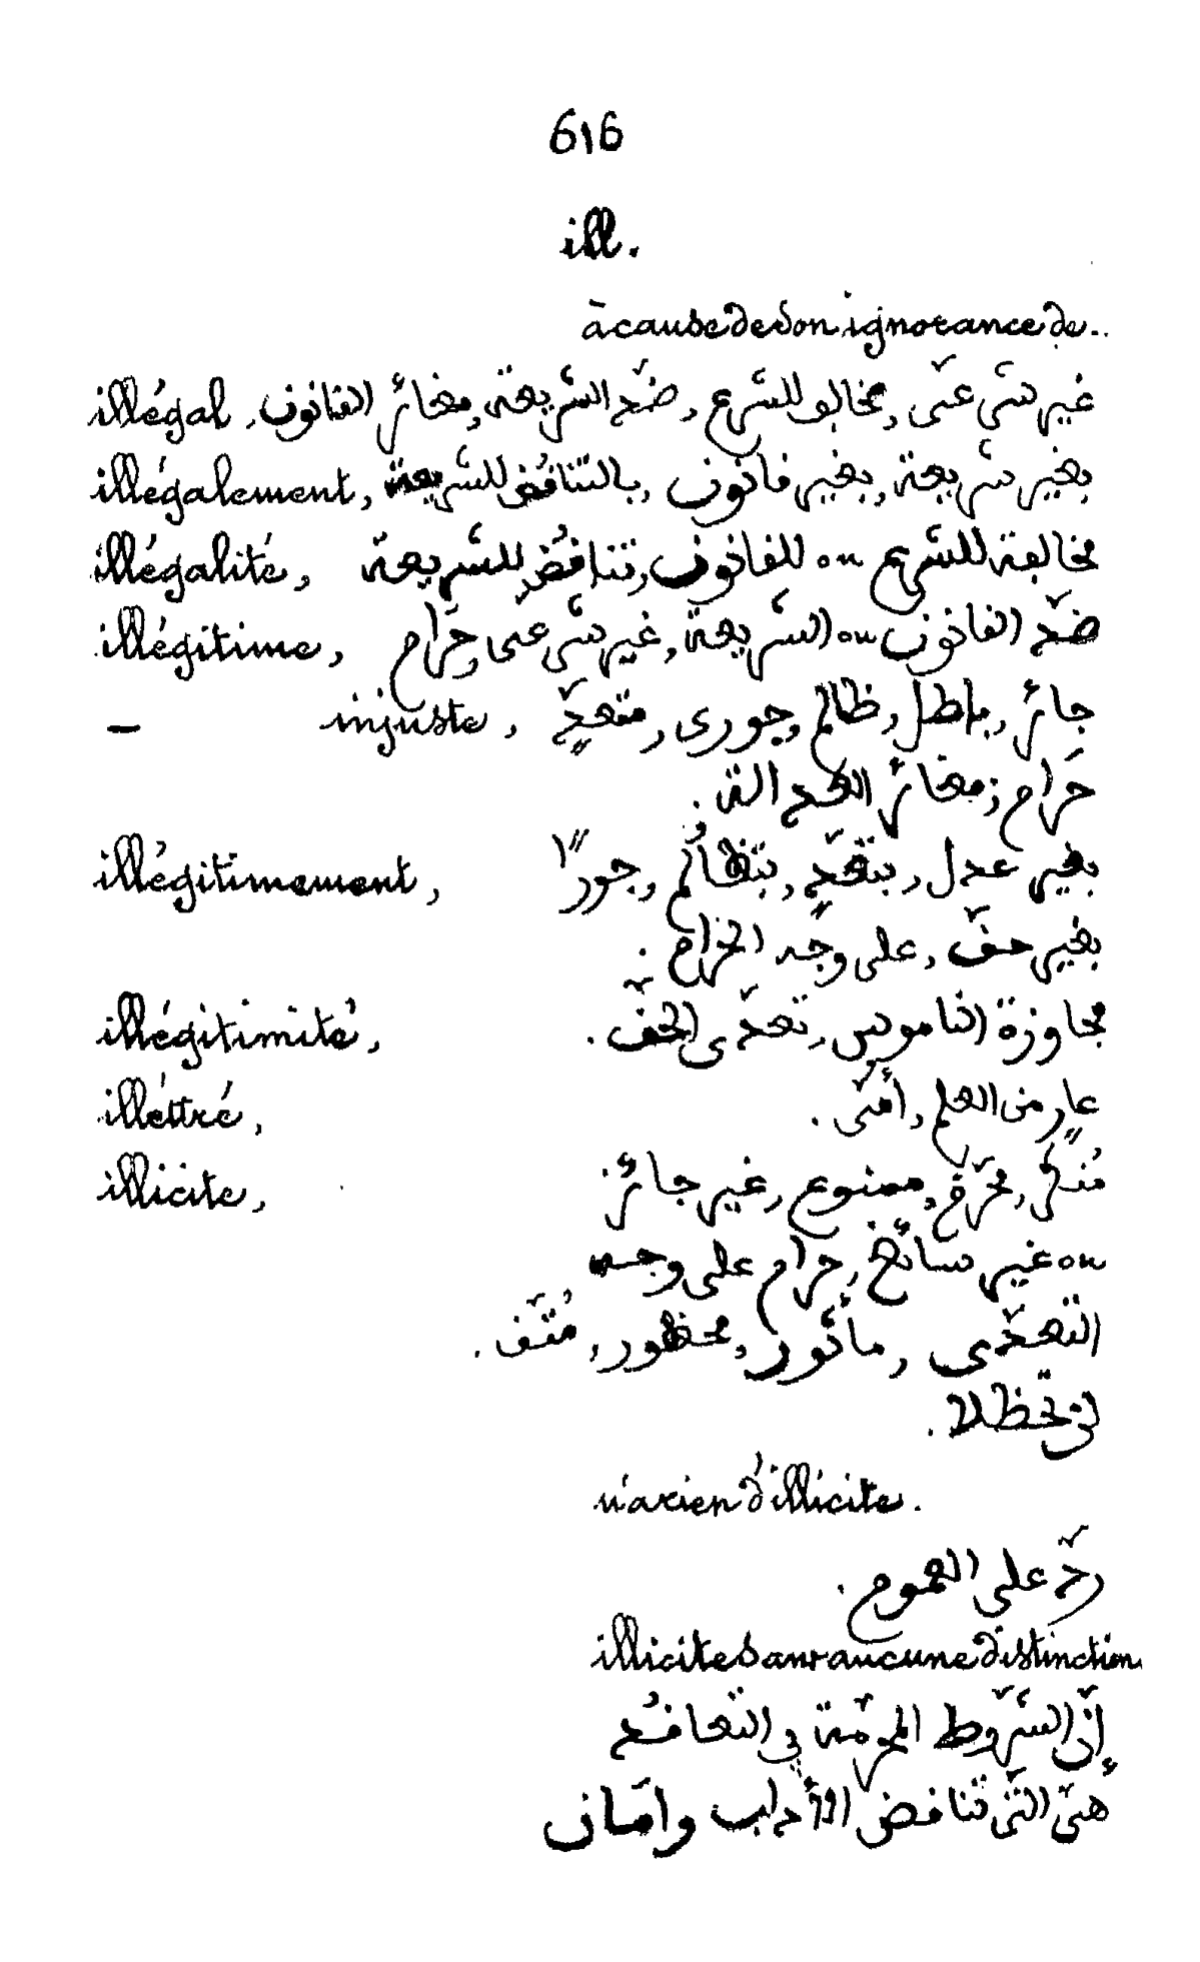 616
ill.
à cause de son ignorance de..
illégal, غير شرعىّ, مخالف للشّرع, ضدّ الشّريعة, مغائر القانون
illégalement, بغير شريعة, بغير قانون, بالتناقُض للشّريعة
illégalité, مخالفة للشّريع ou للقانون, تناقُض للشّريعة
illégitime, ضدّ القانون ou الشّريعة, غير شرعىّ, حَرام
— injuste, جائر, باطل, ظالم, جورى, متعدٍّ
حَرام, مغائر العدالة.
illégitimement, بغير عدل, بتعدٍّ, بتظالُم, جورًا
بغير حقّ, على وجه الحرام.
illégitimité, مجاوزة الناموس, تعدّى الحقّ.
illettré, عارٍ من العلم, أمّى.
illicite, مُنكَر, محرَّم, ممنوع, غير جائز
ou غير سائغ, حرام على وجه
التعدّى, مأثور, محظور,
لن تحظلا.
n'a rien d'illicite.
ردّ على العموم.
illicite sans aucune distinction.
إنّ الشّروط المحرّمة في التعاقُد
هىّ الّتى تناقض الأداب وامان